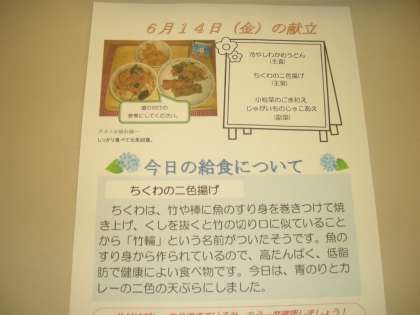 6月14日（金）の献立
冷やしわかめうどん
(主食)
ちくわの二色揚げ
(主菜)
小松菜のごま和え
じゃがいものじゃこあえ
(副菜)
盛り付けの
参考にしてください。
しっかり食べて元気回復。
今日の給食について
ちくわの二色揚げ
ちくわは、竹や棒に魚のすり身を巻きつけて焼
き上げ、くしを抜くと竹の切り口に似ていること
から「竹輪」という名前がついたそうです。魚の
すり身から作られているので、高たんぱく、低脂
肪で健康によい食べ物です。今日は、青のりとカ
レーの二色の天ぷらにしました。